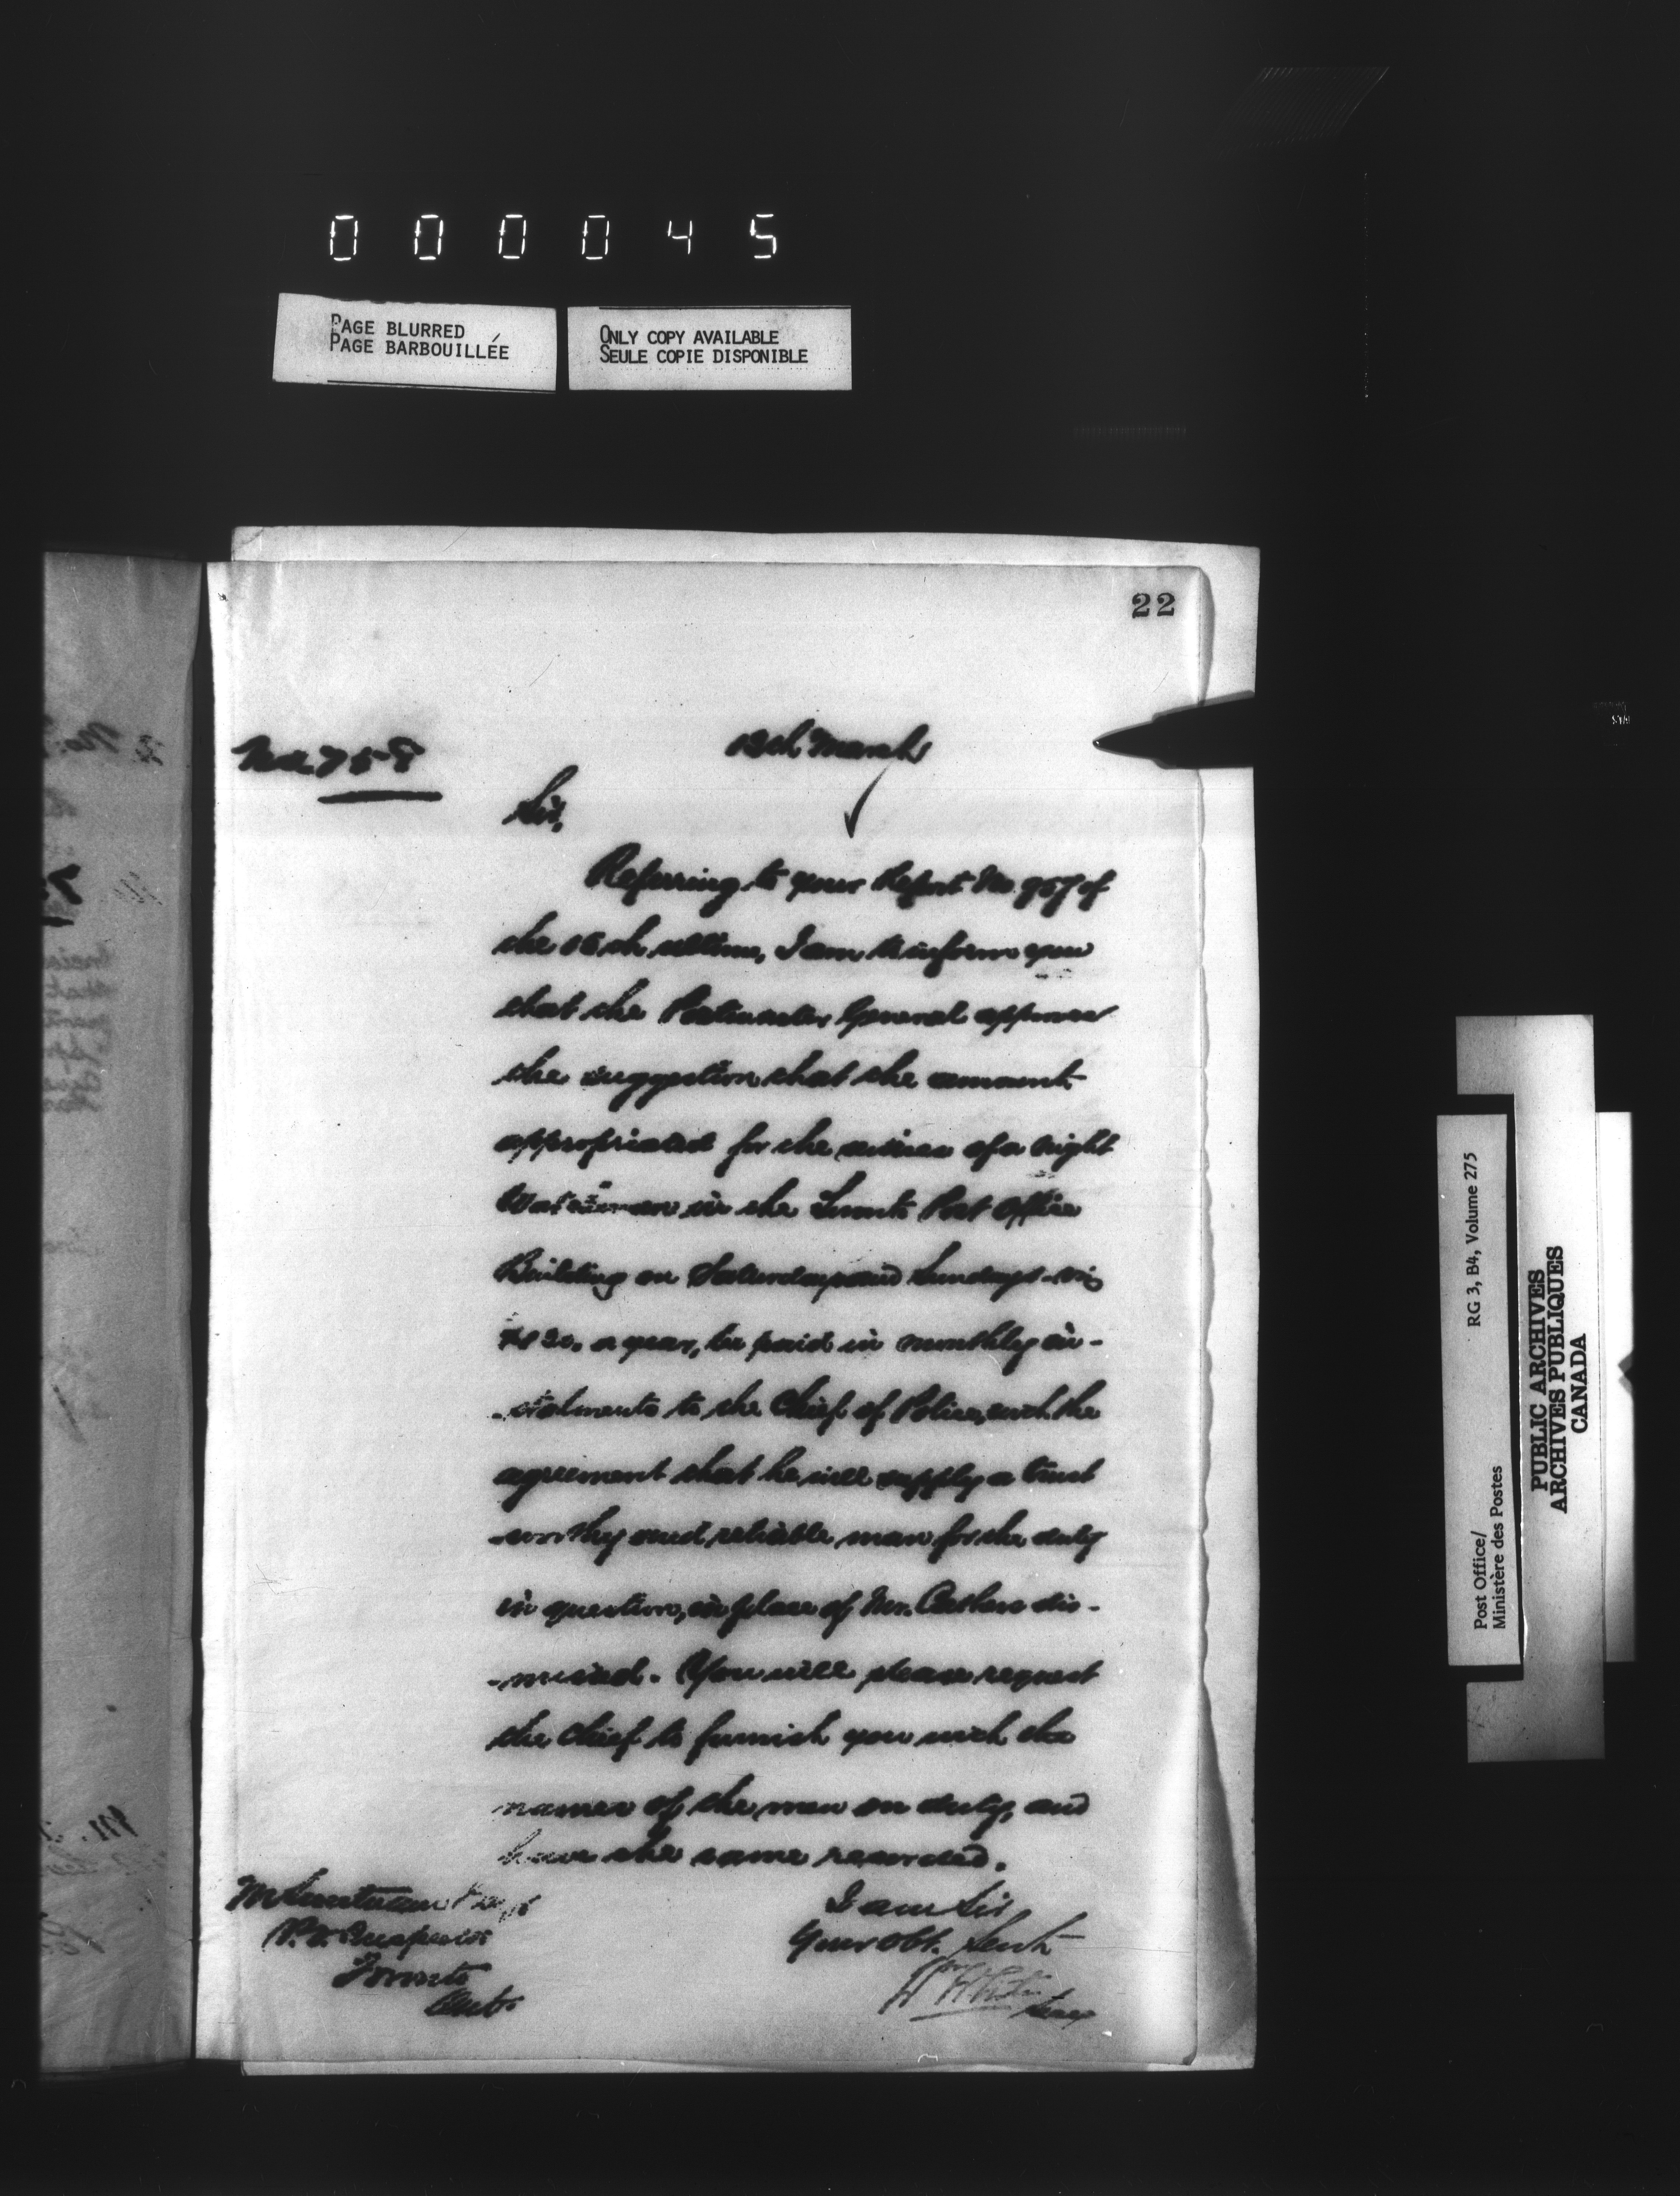 000045
PAGE BLURRED
PAGE BARBOUILLÉE
ONLY COPY AVAILABLE
SEULE COPIE DISPONIBLE
22
13th March
Sir,
Referring to your Report No 957 of
the 15th ultimo, I am to inform you
that the Postmaster General approves
the suggestion that the amount
appropriated for the services of a night
Watchman in the Toronto Post Office
Building on Saturdays and Sundays - viz
a year, be paid in monthly in-
-stalments to the Chief of Police, with the
agreement that he will supply a trust
-worthy and reliable man for the duty
in question, in place of Mr. dis-
-missed. You will please request
the Chief to furnish you with the
names of the men on duty, and
have the same recorded.
I am Sir
Your Obt. Servt.
Wm White
Secy
P.O. Inspector
Toronto
Ont.
Post Office/
Ministère des Postes
RG 3, B4, Volume 275
PUBLIC ARCHIVES
ARCHIVES PUBLIQUES
CANADA